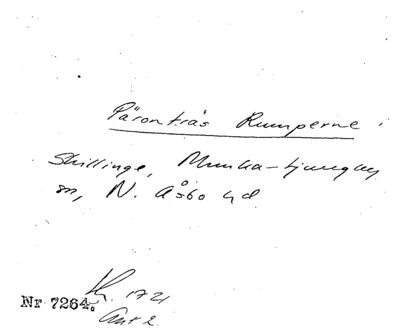 Päronträs Rumperne i
Skillinge, Munka-Ljungby
sn, N. Åsbo hd
Nr 7264.
1721
Ant 2